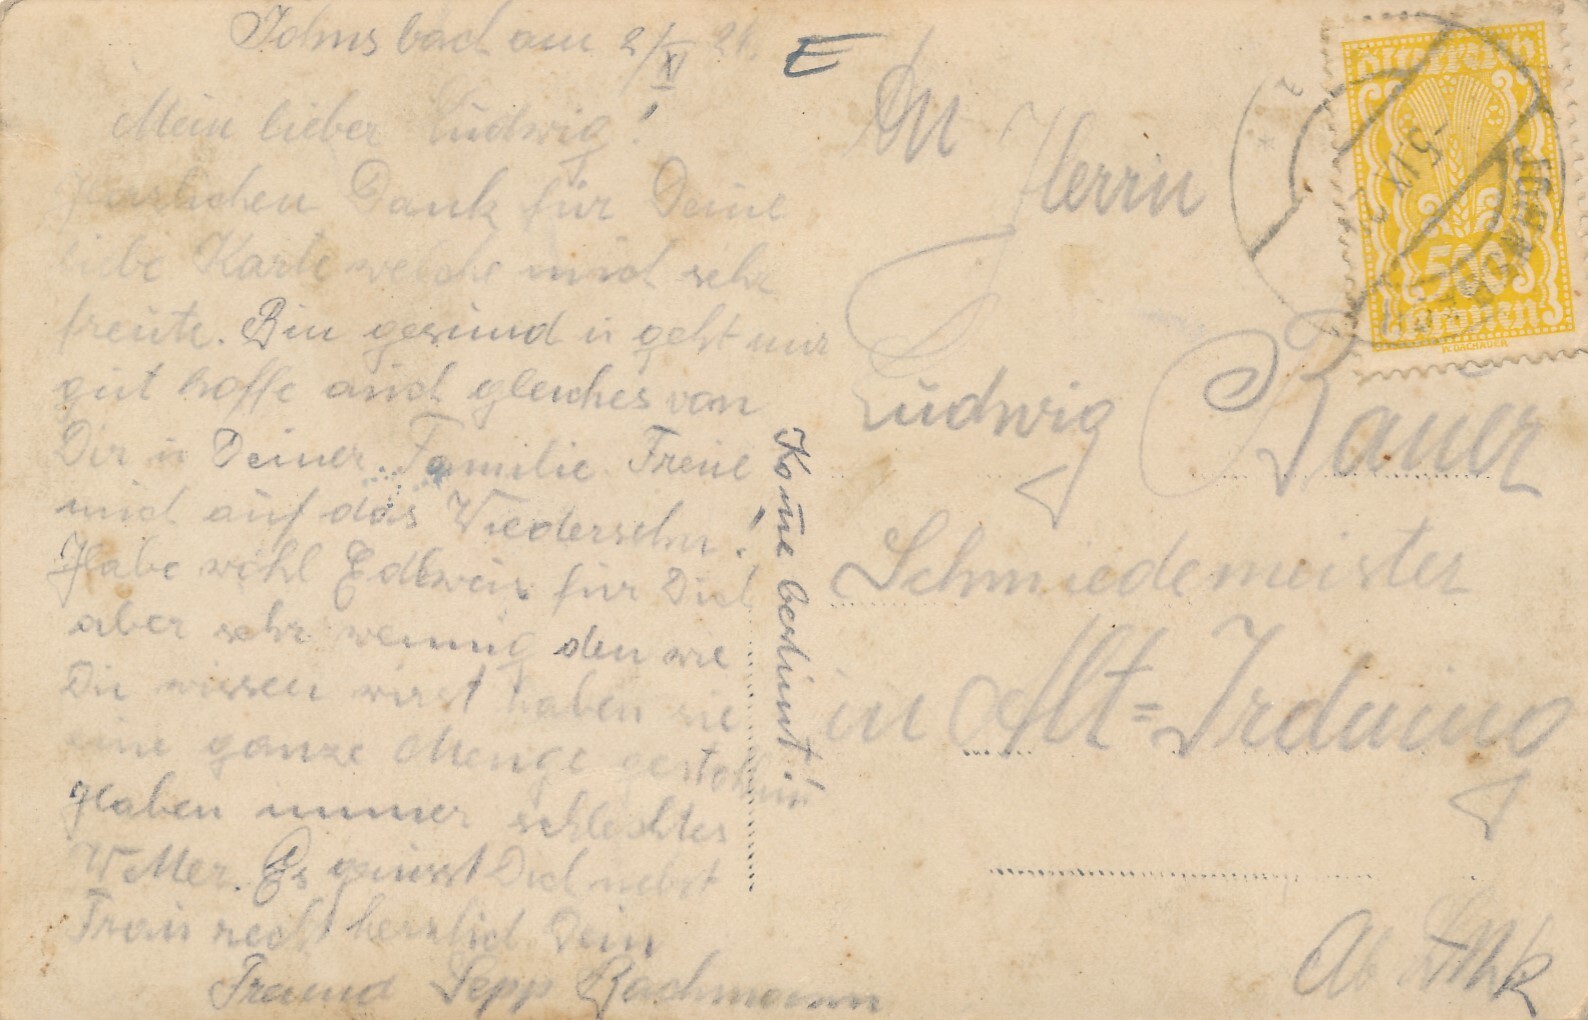 Johnsbach am 2/XI 24
Mein lieber Ludwig!
Herzlichen Dank für Deine
liebe Karte welche mich sehr
freute. Bin gesund u geht mir
gut hoffe auch gleiches von
Dir u Deiner Familie Freue
mich auf das Wiedersehn!
Habe wohl Edlweis für Dich
aber sehr wennig den wie
Du wissen wirst haben sie
eine ganze Menge gestohlen
Haben immer schlechtes
Wetter. Es grüsst Dich nebst
Frau recht herzlich Dein
Freund Sepp Bachmann
Kome bestimt!
E
An
Herrn
Ludwig Bauer
Schmiedemeister
in Alt=Irdning
Österreich
500
Kronen
R. DACHAUER
JOHNSBACH